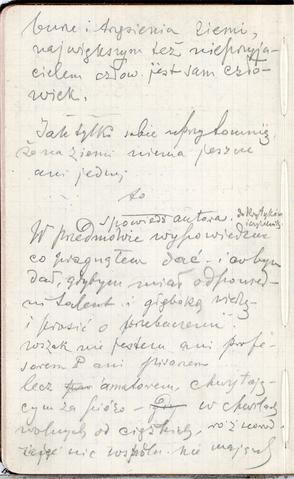 burze i trzęsienia ziemi,
największym też nieprzyja-
cielem człow. jest sam czło-
wiek.
Jak tylko sobie uprzytomnię,
że na ziemi niema jeszcze
ani jednej
to
Spowiedź autora. do krytyków
W przedmowie wypowiedzieć
co pragnąłem dać i co bym
dał, gdybym miał odpowied-
ni talent i głęboką wiedzę
i prosić o przebaczenie
wszak nie jestem ani profe-
sorem ani pisarzem
lecz amatorem, chwytają-
cym za pióro w chwilach
wolnych od ciężkiej,
nic wspóln. nie mającej